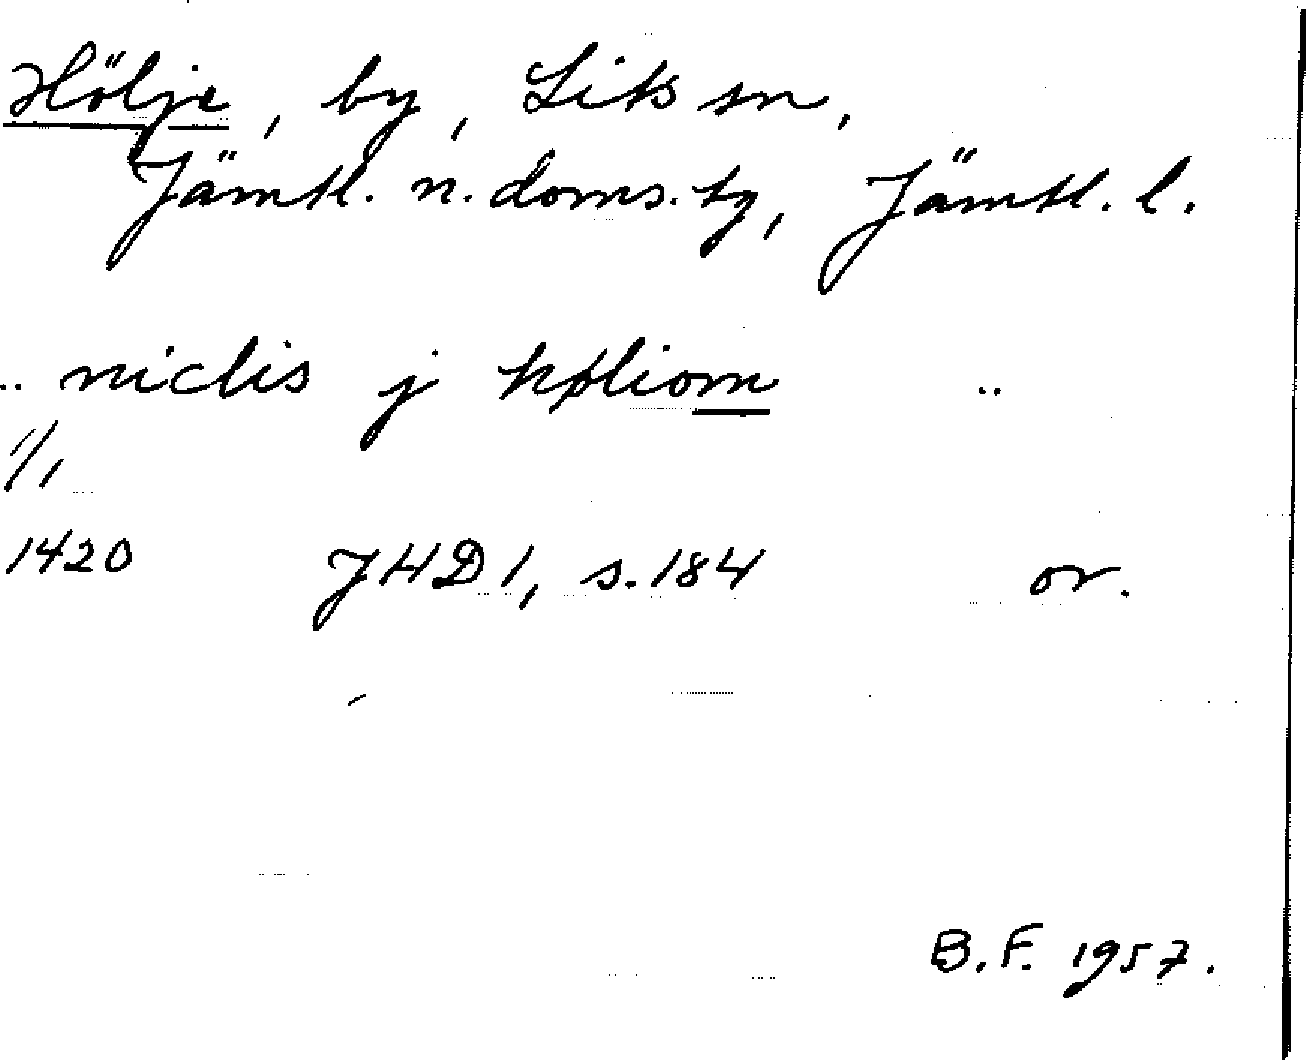 Hölje, by, Liks sn,
Jämtl. n. doms. tg, Jämtl. l.
.. niclis j høliom ..
1/1
1420 JHD 1, s. 184 or.
B.F. 1957.